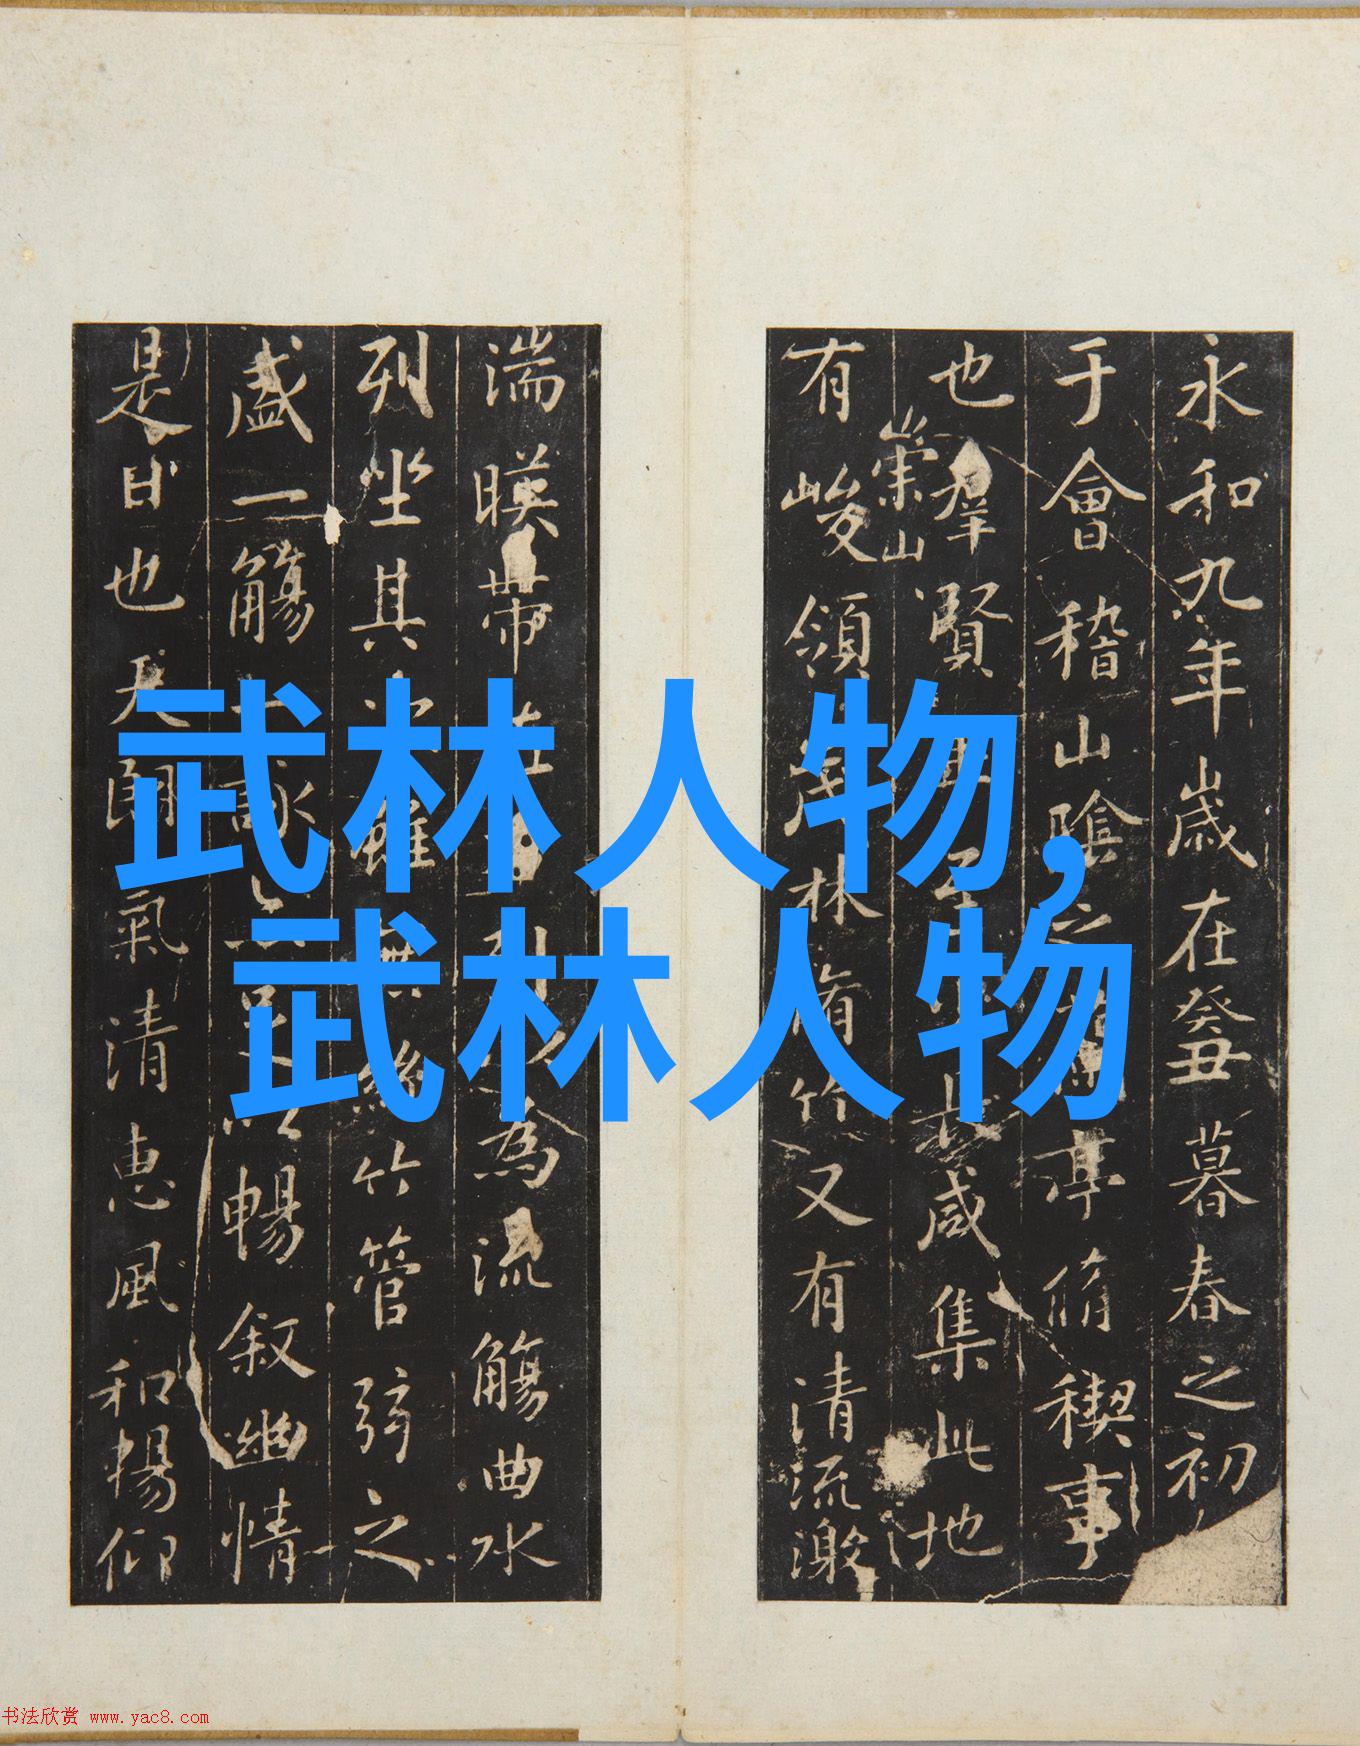 武林人物，
武林人物
永和九年歲在癸丑暮春之初
于會稽山陰之亭脩稧事
也羣賢咸集此地
崇山
有峻領茂林脩竹又有清流激
湍暎帶引以為流觴曲水
列坐其雖無絲竹管弦之
盛一觴一詠足以暢叙幽情
是日也天朗氣清惠風和暢仰
书法欣赏 www.yac8.com